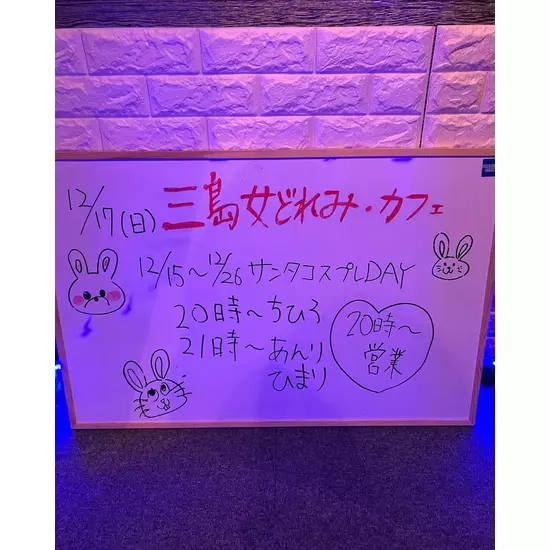 12/17(日) 三島女どれみ・カフェ
12/15～12/26 サンタコスプレDAY
20時～ちひろ
21時～あんり
ひまり
20時～
営業